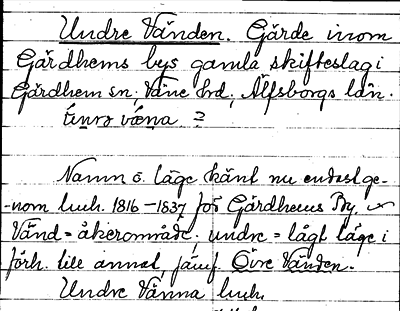 Undre Vänden. Gärde inom
Gärdhems bys gamla skifteslag i
Gärdhem sn; Väne hd; Älfsborgs län.
?
Namn o. läge känt nu endast ge-
-nom luch. 1816-1837 för Gärdhems By.
Vänd = åkerområde; undre = lågt läge i
förh. till annat, jämf. Övre Vänden.
Undre Vänna luch.